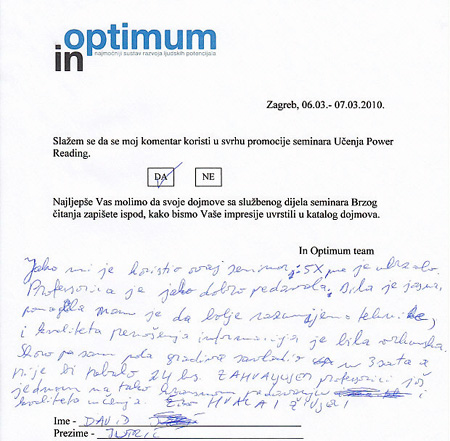 optimum
najmoćniji sustav razvoja ljudskih potencijala
in
Zagreb, 06.03.- 07.03.2010.
Slažem se da se moj komentar koristi u svrhu promocije seminara Učenja Power
Reading.
DA NE
Najljepše Vas molimo da svoje dojmove sa službenog dijela seminara Brzog
čitanja zapišete ispod, kako bismo Vaše impresije uvrstili u katalog dojmova.
In Optimum team
Jako mi je koristio ovaj seminar, 5X me je ubrzalo.
Profesorica je jako dobro predavala. Bila je jasna,
pomogla nam je da bolje razumijemo tehnike
i kvaliteta prenošenja informacija je bila vrhunska.
gradiva u 3 sata a
prije bi trebalo 24 h. ZAHVALJUJEM profesorici još
jednom na tako
kvaliteti učenja. HVALA I ŽIVJELI
Ime - DAVID
Prezime -